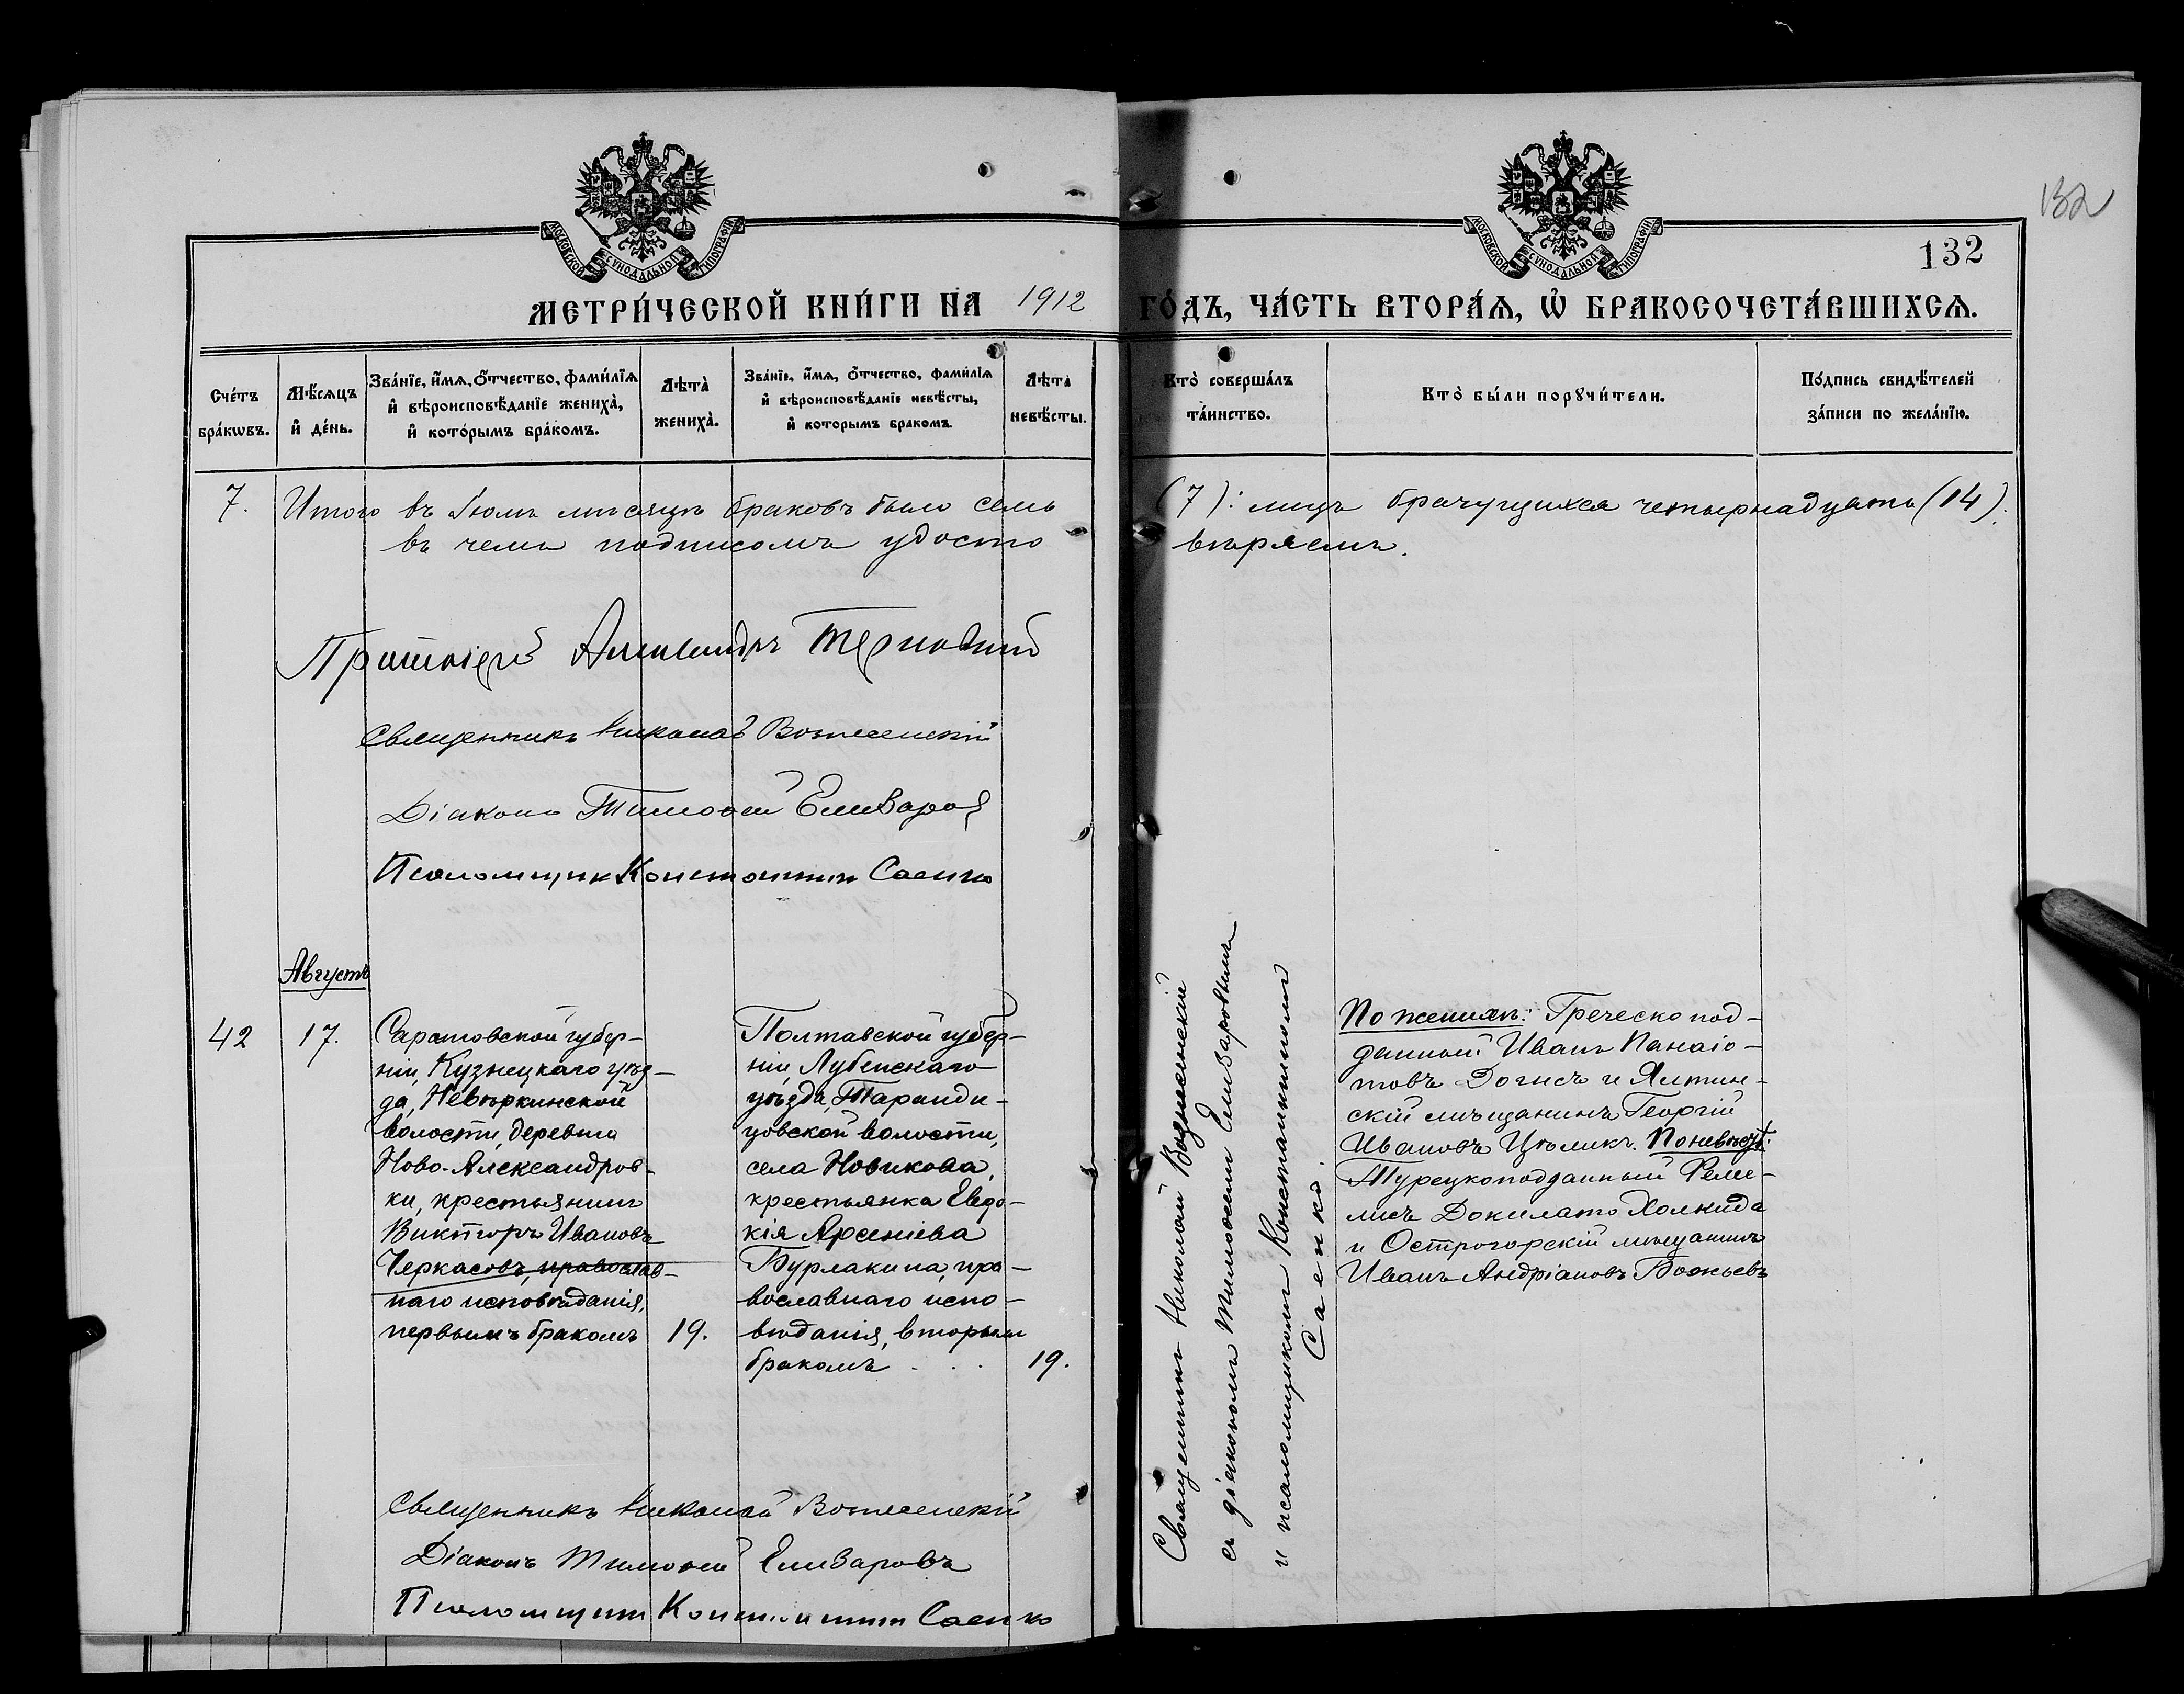 132
132
МОСКОВСКОЙ СѴНОДАЛЬНОЙ ТИПОГРАФІИ
МОСКОВСКОЙ СѴНОДАЛЬНОЙ ТИПОГРАФІИ
МЕТРИ́ЧЕСКОЙ КНИ́ГИ НА 1912 ГО́ДЪ, ЧА́СТЬ ВТОРА́Ѧ, Ѽ БРАКОСОЧЕТА́ВШИХСѦ.
Сче́тъ
бра́кѡвъ.
Мѣ́сѧцъ
и҆ де́нь.
Зва́нїе, и҆́мѧ, ѻ҆́тчество, фами́лїѧ
и҆ вѣроисповѣ́данїе жениха̀,
и҆ кото́рымъ бра́комъ.
Лѣта̀
жениха̀.
Зва́нїе, и҆́мѧ, ѻ҆́тчество, фами́лїѧ
и҆ вѣроисповѣ́данїе невѣ́сты,
и҆ которымъ бракомъ.
Лѣта̀
невѣ́сты.
Кто̀ соверша́лъ
та́инство.
Кто̀ бы́ли порꙋчи́тели.
По́дпись свидѣ́телей
за́писи по жела́нїю.
7. Итого въ Іюлѣ мѣсяцѣ браковъ было семь (7): лицъ брачущихся четырнадцать (14).
въ чемъ подписомъ удосто вѣряемъ.
Протоіерей Александръ Терновский
Священникъ Николай Вознесенскій
Діаконъ Тимоѳей Еливаров
Псаломщик Константинъ Саенко
Августъ
42
17.
Саратовской губер-
ніи, Кузнецкаго уѣз-
да, Невѣркинской
волости, деревни
Ново-Александров-
ки, крестьянинъ
Викторъ Ивановъ
Черкасовъ, православ-
наго исповѣданія,
первымъ бракомъ
19.
Полтавской губер-
ніи, Лубенскаго
уѣзда, Таранди-
цовской волости,
села Новикова,
крестьянка Евдо-
кія Арсеніева
Бурлакина, пра-
вославнаго испо-
вѣданія, вторымъ
бракомъ . . .
19.
Священникъ Николай Вознесенскій
съ діакономъ Тимоѳеем Еливаровымъ
и псаломщикомъ Константиномъ
Саенко.
По женихѣ: Греческо под-
данный Иванъ Панаіо-
товъ Догисъ и Ялтин-
скій мѣщанинъ Георгій
Ивановъ Цѣликъ. По невѣстѣ:
Турецкоподданный
Халкида
и Острогорскій мѣщанинъ
Иванъ Андріановъ
Священникъ Николай Вознесенскій
Діаконъ Тимоѳей Еливаровъ
Псаломщикъ Константинъ Саенко